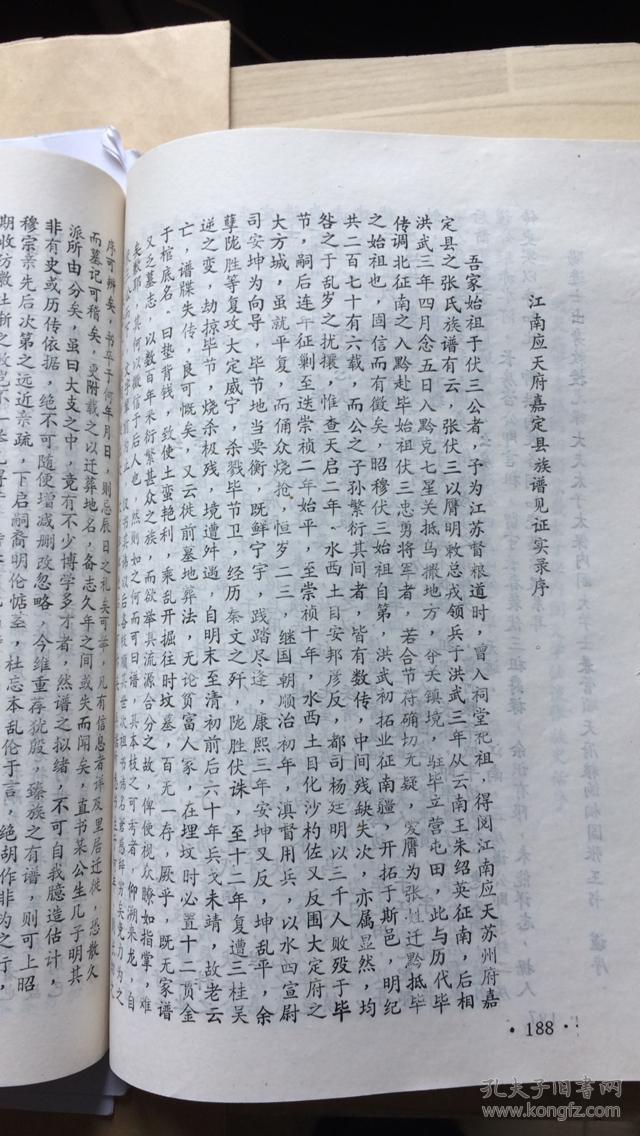 江南应天府嘉定县族谱见证实录序
吾家始祖于伏三公者，予为江苏督粮道时，曾入祠堂祀祖，得阅江南应天苏州府嘉
定县之张氏族谱有云，张伏三以膺明敕总戎领兵于洪武三年从云南王朱绍英征南，后相
洪武三年四月念五日入黔克七星关抵乌撒地方，夺关镇境，驻毕立营屯田，此与历代毕
传调北征南之入黔赴毕始祖伏三忠勇将军者，若合节符确切无疑，爰膺为张姓迁黔抵毕
之始祖也，固信而有徵矣，昭穆伏三始祖自第，洪武初拓业征南疆，开拓于斯邑，明纪
共二百七十有六载，而公之子孙繁衍其间者，皆有数传，中间残缺失次，亦属显然，均
咎之于乱岁之扰攘，惟查天启二年、水西土目安邦彦反，都司杨廷明以三千人败殁于毕
节，嗣后连年征剿至迭崇祯二年始平，至崇祯十年，水西土目化沙杓佐又反围大定府之
大方城，虽就平复，而俑众烧抢，恒岁二三，继国朝顺治初年，滇督用兵，以水四宣尉
司安坤为向导，毕节地当要衡，既鲜宁宇，践踏尽逢，康熙三年安坤又反，坤乱平，余
孽陇胜等复攻大定威宁，杀戮毕节卫，经历秦文之歼，陇胜伏诛，至十二年复遭三桂吴
逆之变，劫掠毕节，烧杀极残，境遭舛遇，自明末至清初前后六十年兵戈未靖，故老云
亡，谱牒失传，良可慨矣，又云徙前墓地葬法，无论贫富人家，在埋坟时必置十二贯金
于棺底名，曰垫背钱，致使土蛮艳利，乘乱开掘往时坟墓，百无一存，厥乎，既无家谱
又乏墓志，以数百年来衍繁甚众之族，而欲举具流源合分之故，俾便视众瞭如指掌，难
序可辨矣，书卒于何年月日，则忌辰日之礼矣可举，凡有信息者详及里居迁徙，恐散久
而墓记可稽矣，更附载之以迁葬地名，备志久年之间或失而闻矣，直书某公生几子明其
派所由分矣，虽曰大支之中，竟有不少博学多才者，然谱之拟绪，不可自我臆造估计，
非有史或历传依据，绝不可随便增减删改忽略，今维重荐犹殷，臻族之有谱，则可上昭
穆宗亲先后次第之远近亲疏，下启嗣裔明伦惦至，杜忘本乱伦于言，绝胡作非为之行，
·188·
孔夫子旧书网
www.kongfz.com